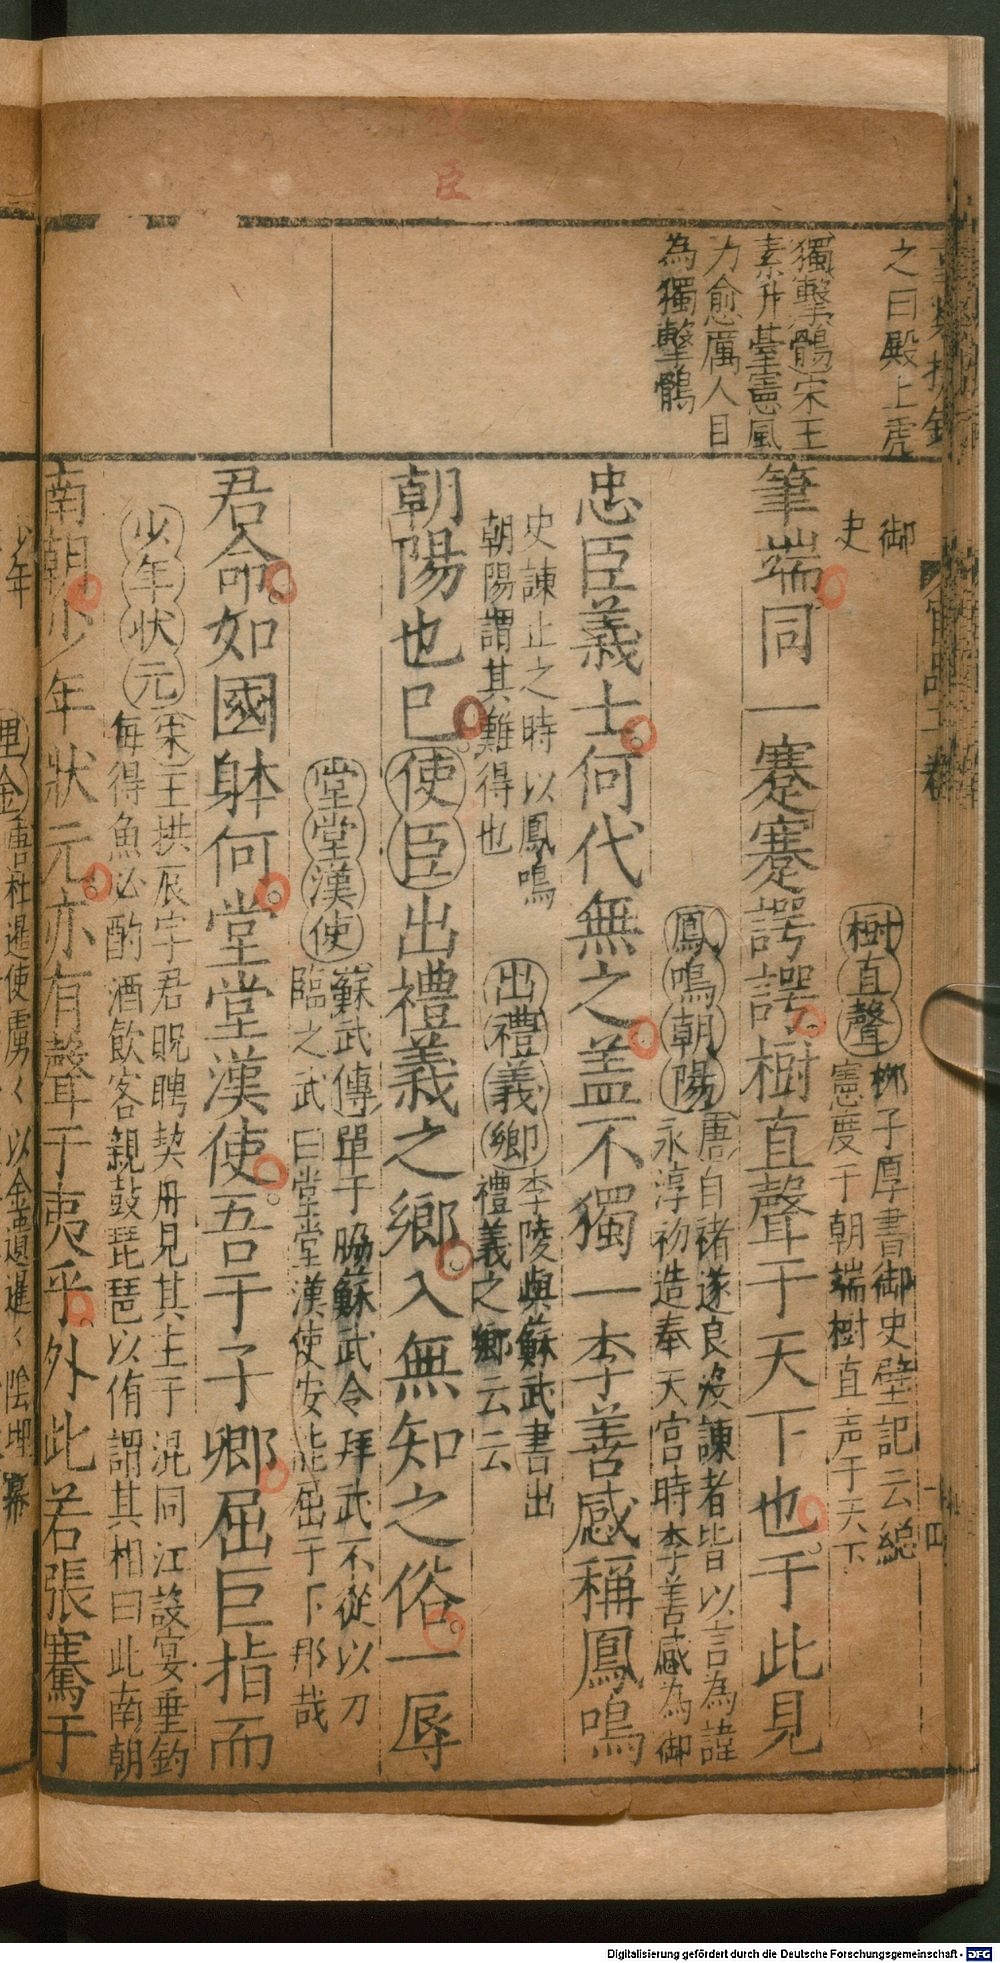 使臣
之曰殿上虎
獨擊鶻宋王
素升臺憲風
力愈厲人目
為獨擊鶻
御
史
樹直聲
柳子厚書御史壁記云総
憲度于朝端樹直声于天下
筆端同一蹇蹇諤諤樹直聲于天下也于此見
鳳鳴朝陽
唐自褚遂良没諫者皆以言為諱
永淳初造奉天宮時李善感為御
忠臣義士何代無之盖不獨一李善感稱鳳鳴
史諫止之時以鳳鳴
朝陽謂其難得也
出禮義鄉
李陵與蘇武書出
禮義之鄉云云
朝陽也巳使臣出禮義之鄉入無知之俗一辱
堂堂漢使
蘇武傳單于脇蘇武令拜武不從以刀
臨之武曰堂堂漢使安能屈于下那哉
君命如國躰何堂堂漢使吾于子卿屈巨指而
少年状元
宋王拱辰字君貺聘契丹見其主于混同江設宴垂釣
每得魚必酌酒飲客親鼓琵琶以侑謂其相曰此南朝
南朝少年狀元亦有聲于夷乎外此若張騫于
少年
埋金
唐杜暹使虜く以金遺暹く陰埋幕
Digitalisierung gefördert durch die Deutsche Forschungsgemeinschaft - DFG